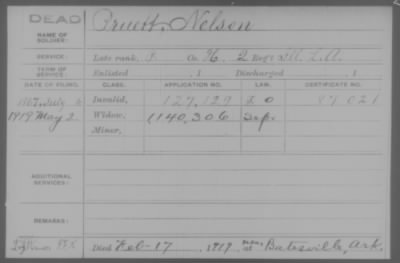 DEAD
NAME OF SOLDIER: Pruett, Nelson
SERVICE: Late rank, P. Co. H. 2 Reg't Ill. L.A.
TERM OF SERVICE: Enlisted , 1 Discharged , 1
DATE OF FILING. CLASS. APPLICATION NO. LAW. CERTIFICATE NO.
July 6 Invalid, 127,127 87021
1919 May 2 Widow, 1,140,306
Minor,
ADDITIONAL SERVICES:
REMARKS:
Died Feb-17 , 1919, near at Batesville, Ark.